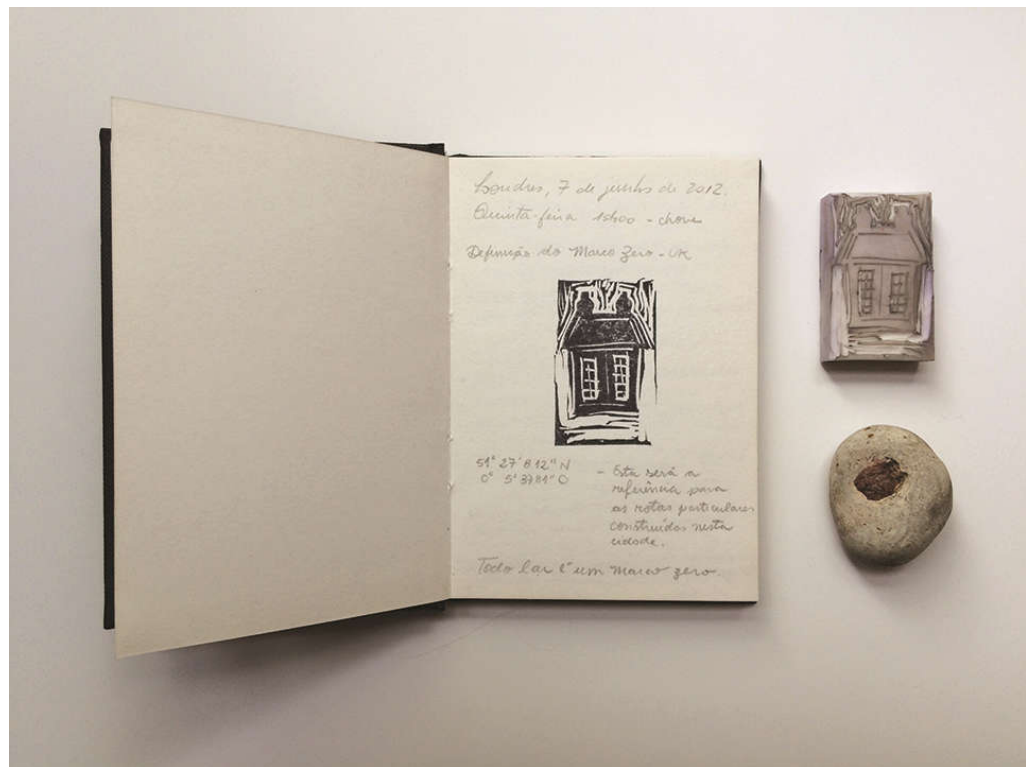 Londres, 7 de junho de 2012.
Quinta-feira 15h00 - chove
Definição do Marco Zero - UK
51° 27' 8 12" N
0° 5' 37 81" O
- Esta será a
referência para
as rotas particulares
construídas nesta
cidade.
Todo lar é um marco zero.